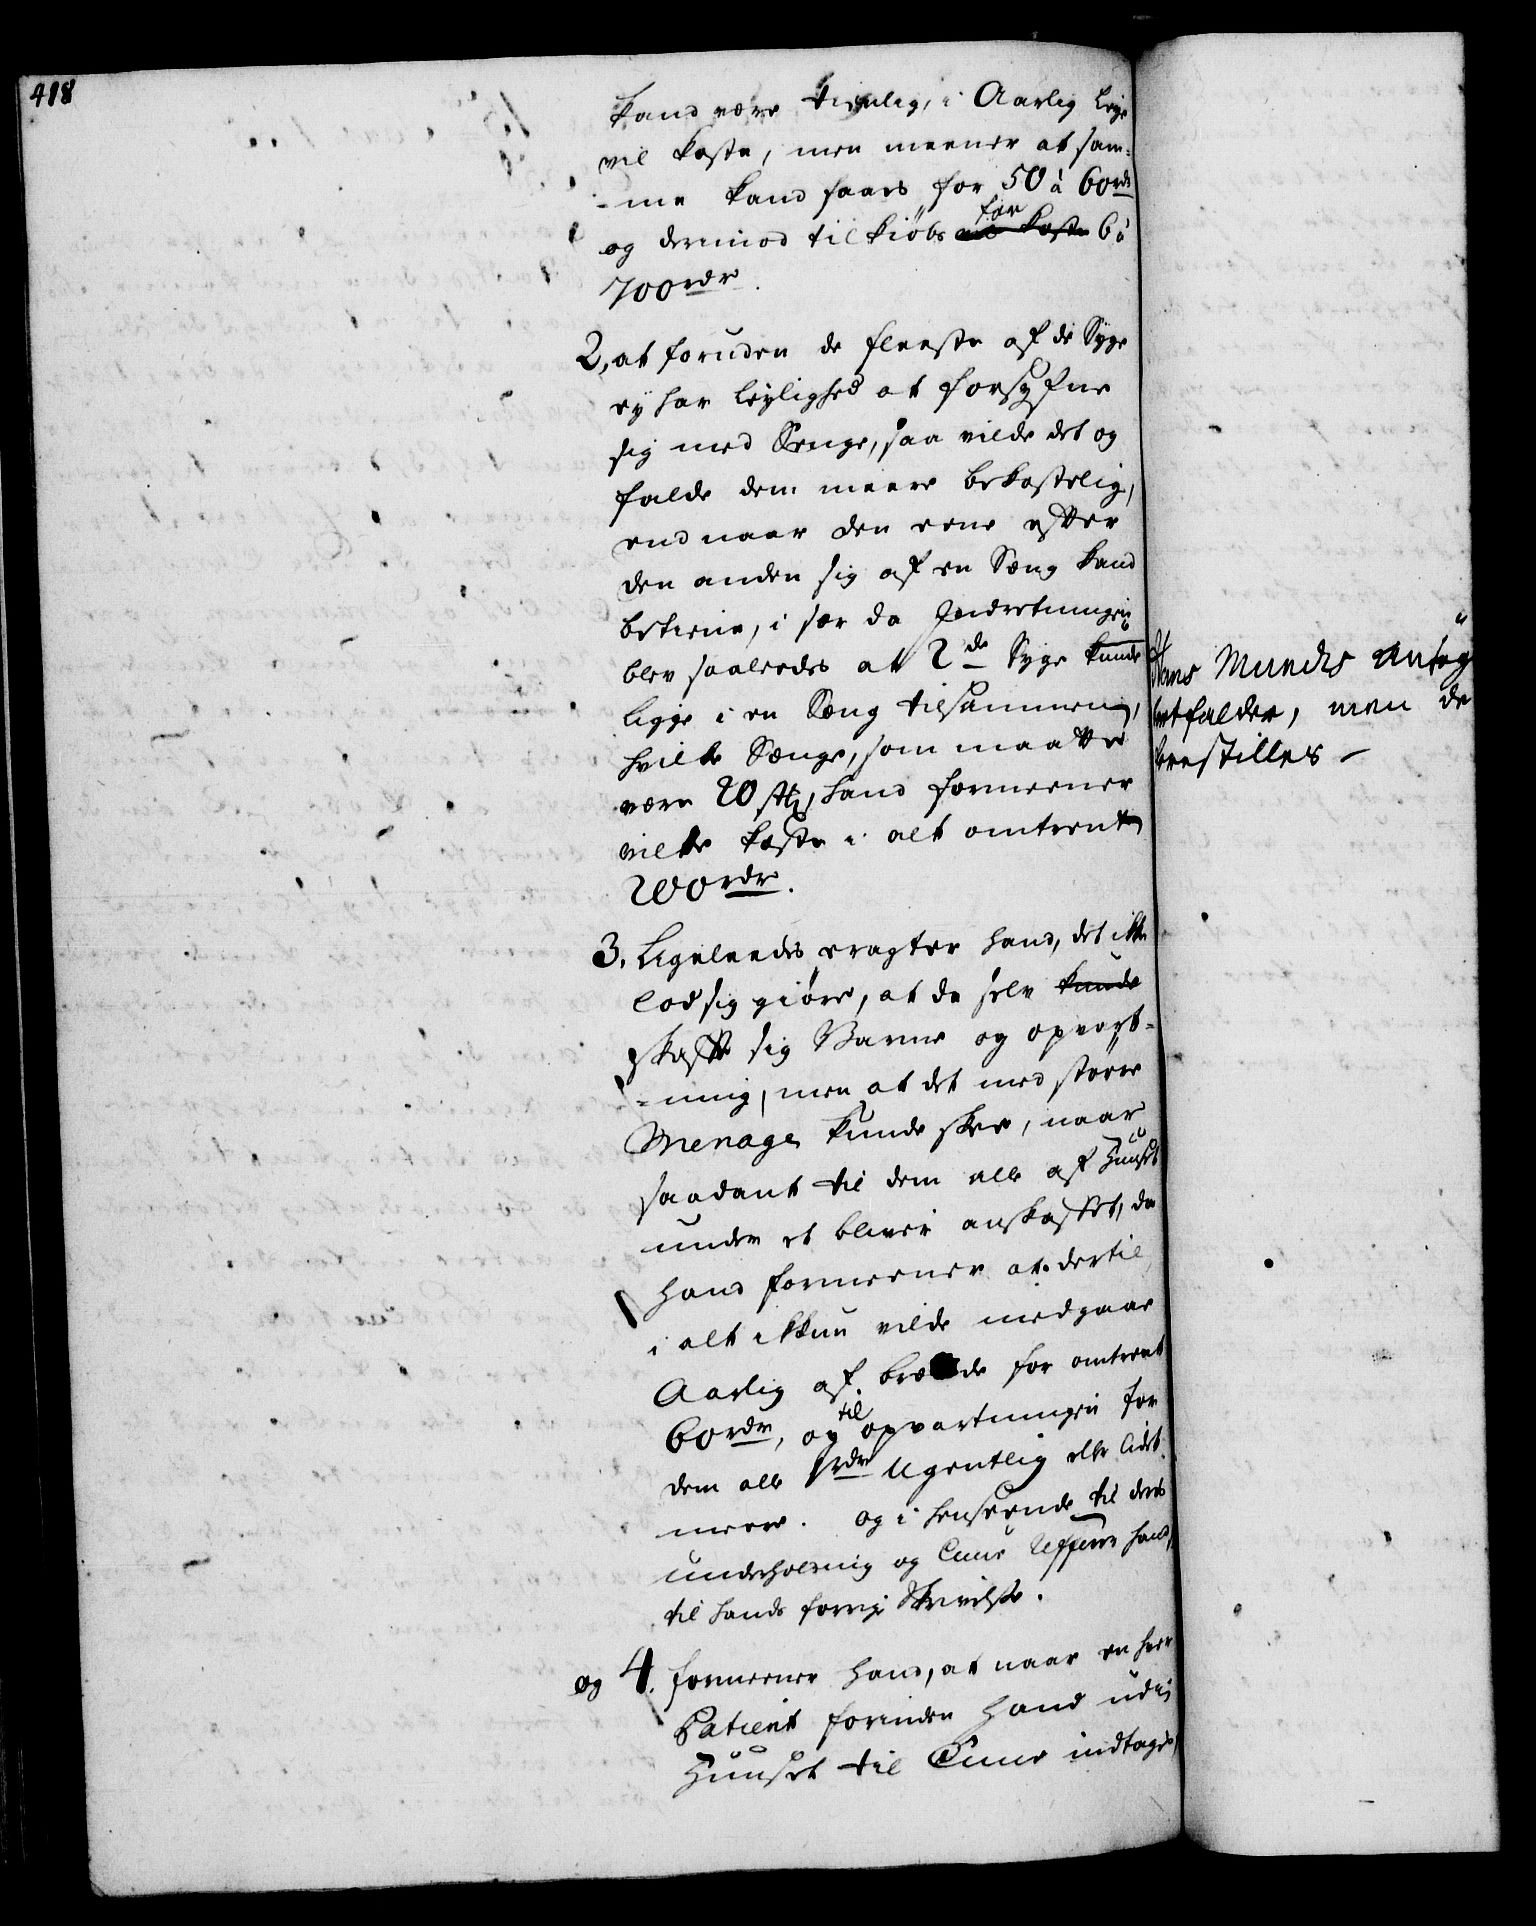 418
kand være tienlig, i Aarlig Leye
vil koste, men meener at sam-
-me kand faaes for 50 à 60rdr
og dermod til kiøbs for koste 6 à
700rdr.
2, at foruden de fleeste af de Syge
ey har leylighed at forsyfne
sig med Senge, saa vilde det og
falde dem meere bekostelig,
end naar den eene efter
den anden sig af en Seng kand
betiene, i sær da Indretningen
blev saaleedes at 2de Syge kunde
ligge i en Seng tilsammen,
hvilke Senge, som maatte
være 20 stk, hand formeener
vilde koste i alt omtrent
200rdr.
3. Ligeleedes eragter hand, det ikke
lod sig giøre, at de selv kunde
skaffe sig Varme og opvart-
-ning, men at det med større
Menage kunde skee, naar
saadant til dem alle af Huuset
under et bliver anskaffet, da
hand formeener at dertil
i alt ikkun vilde medgaae
Aarlig af brænde for omtrent
60rdr, og til opvartningen for
dem alle 1rdr Ugentlig eller lidet
meere. og i henseende til deres
underholdning og Cuur Refferer hand,
til hands forrige Skrivelse.
og 4. formeener hand, at naar en hver
Patient forinden hand udi
Huuset til Cuur indtages,
Hans Munchs Ansøg
bortfalder, men de